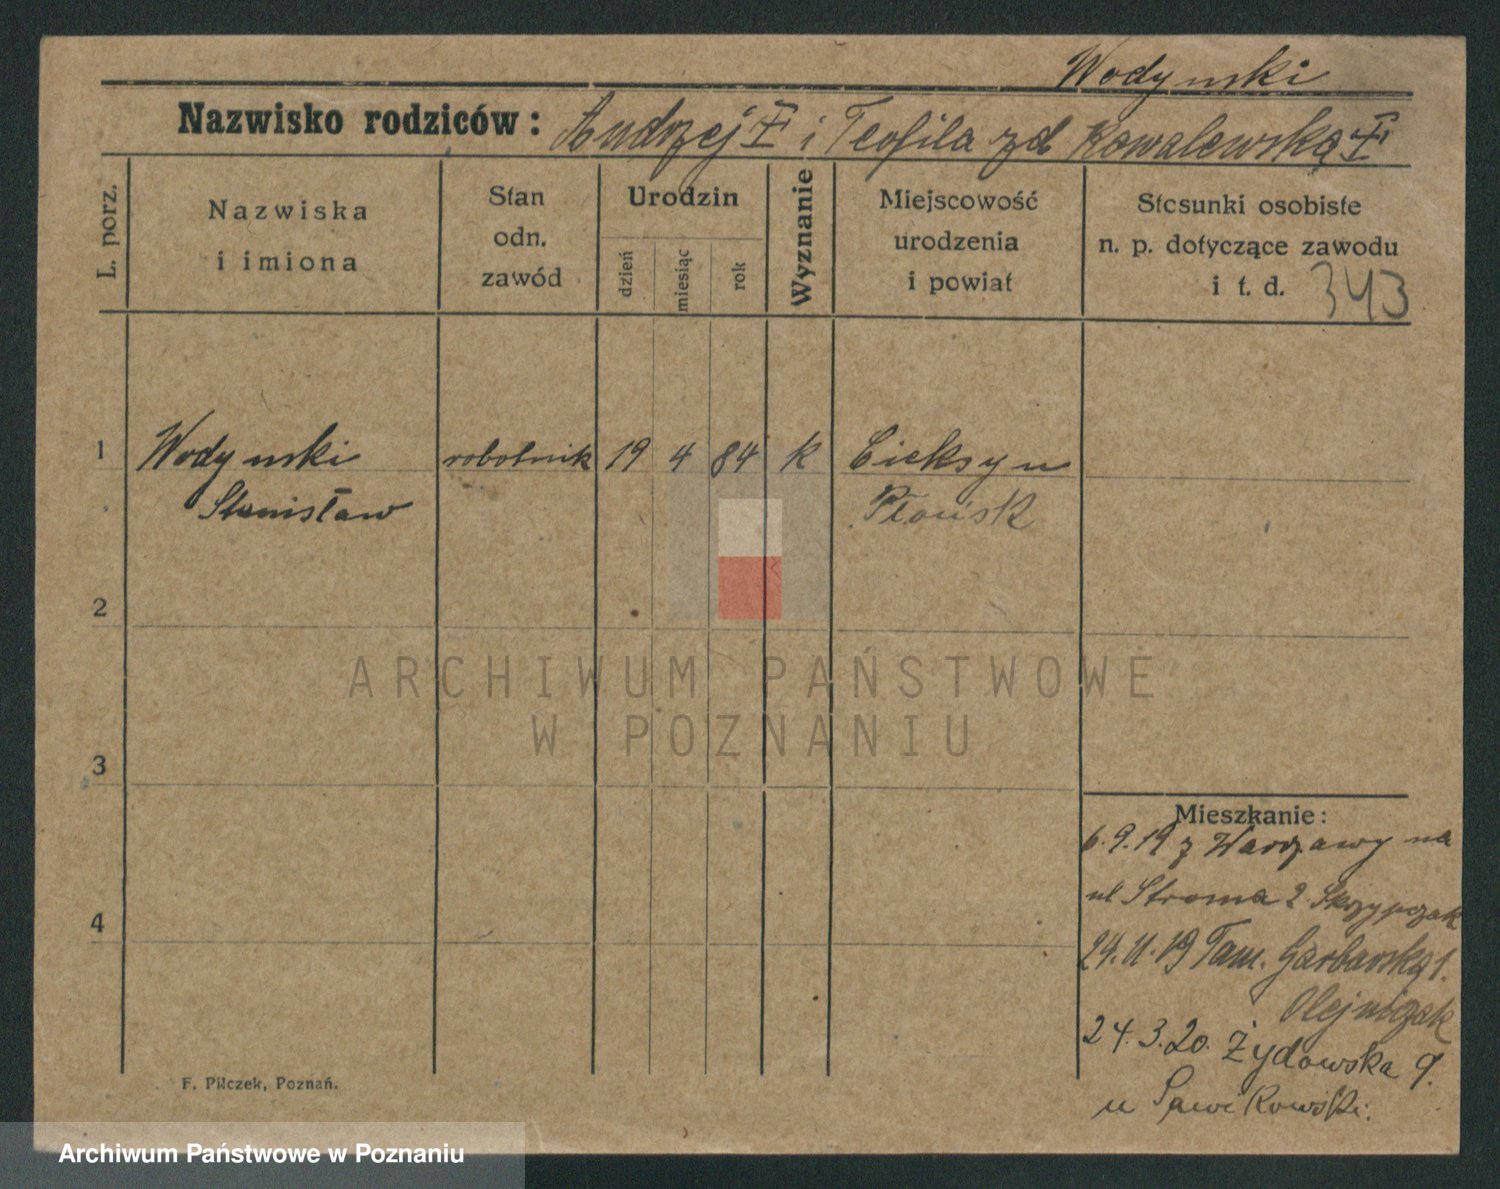 Wodyński
Nazwisko rodziców: Andrzej i Teofila zd Kowalewska
L. porz.
Nazwiska
i imiona
Stan
odn.
zawód
Urodzin
dzień
miesiąc
rok
Wyznanie
Miejscowość
urodzenia
i powiat
Stosunki osobiste
n. p. dotyczące zawodu
i t. d. 343
1 Wodyński robotnik 19 4 84 k Cieksyn
Stanisław Płońsk
2
3
4
ARCHIWUM PAŃSTWOWE
W POZNANIU
Mieszkanie:
6.9.19 z Warszawy na
ul Stroma 2 Skrzypczak
24.11.19 Tam. Garbarska 1.
Olejniczak
24.3.20. Żydowska 9.
u
F. Pilczek, Poznań.
Archiwum Państwowe w Poznaniu